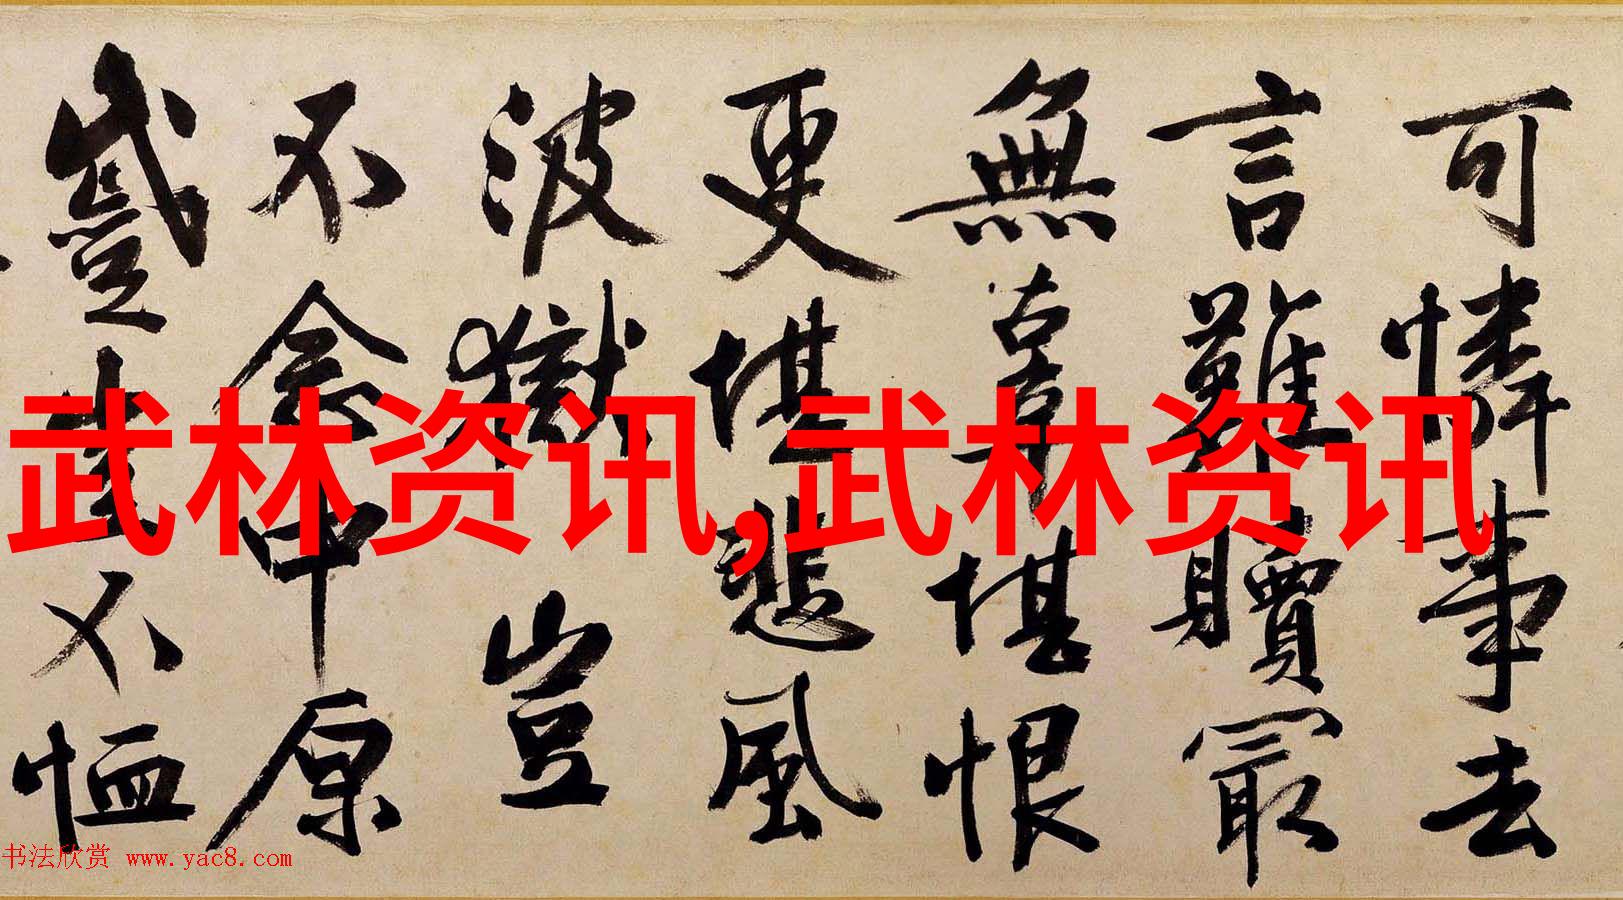 可憐事去
言難贖最
無辜堪恨
更堪悲風
波獄豈
不念中原
蹙豈不恤
武林资讯,武林资讯
书法欣赏 www.yac8.com